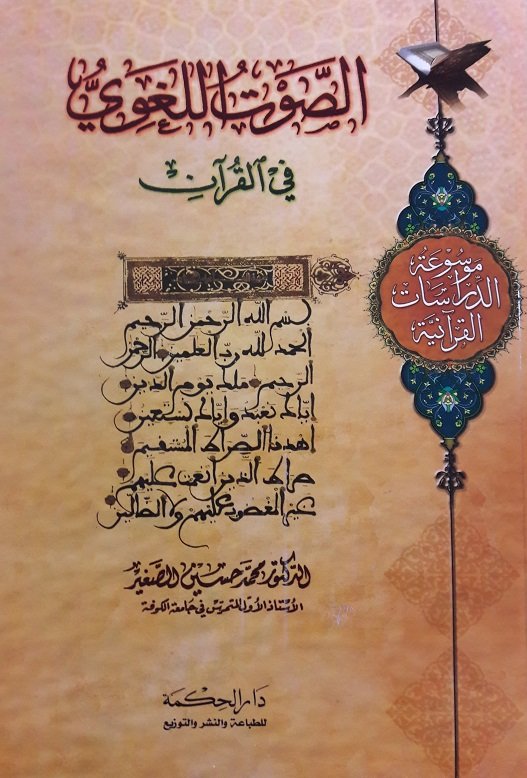 الصَّوْتُ اللُّغَوِيُّ
فِي القُرْآنِ
مَوْسُوعَةُ
الدِّرَاسَات
القُرآنِيَّة
بسم الله الرحمن الرحيم
الحمد لله رب العلمين الرحمن
الرحيم ملك يوم الدين
اياك نعبد واياك نستعين
اهدنا الصراط المستقيم
صراط الذين انعمت عليهم
غير المغضوب عليهم ولا الضالين
الدكتور محمد حسين الصغير
الأستاذ الأول المتمرس في جامعة الكوفة
دار الحكمة
للطباعة والنشر والتوزيع